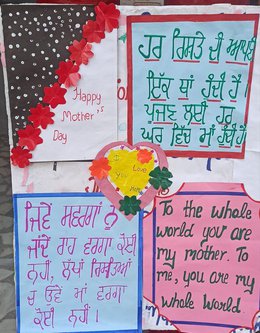 Happy
Mother's
Day
ਹਰ ਰਿਸ਼ਤੇ ਦੀ ਆਪਣੀ
ਇੱਕ ਥਾਂ ਹੁੰਦੀ ਹੈ।
ਪੂਜਣ ਲਈ ਹਰ
ਘਰ ਵਿੱਚ ਮਾਂ ਹੁੰਦੀ ਹੈ।
I
Love
You
Mom
ਜਿਵੇਂ ਸਵਰਗਾਂ ਨੂੰ
ਜਾਂਦੇ ਰਾਹ ਵਰਗਾ ਕੋਈ
ਨਹੀਂ, ਲੱਖਾਂ ਰਿਸ਼ਤਿਆਂ
ਚੋਂ ਓਵੇਂ ਮਾਂ ਵਰਗਾ
ਕੋਈ ਨਹੀਂ।
To the whole
world you are
my mother. To
me, you are my
whole World